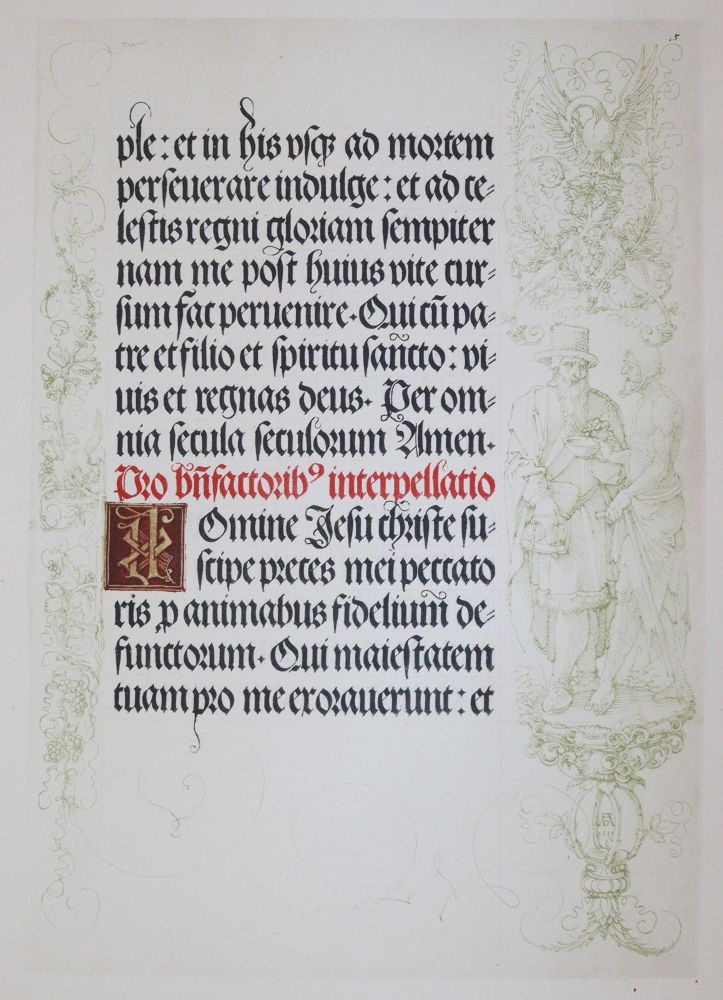 15
ple: et in his vsqꝫ ad mortem
perseuerare indulge: et ad ce-
lestis regni gloriam sempiter
nam me post huius vite cur-
sum fac peruenire. Qui cū pa-
tre et filio et spiritu sañcto: vi-
uis et regnas deus. Per om-
nia secula seculorum Amen.
Pro bn̄factoribꝰ interpellatio
Domine Jesu christe su-
scipe preces mei peccato
ris ꝓ animabus fidelium̄ de-
functorum. Qui maiestatem
tuam pro me exorauerunt: et